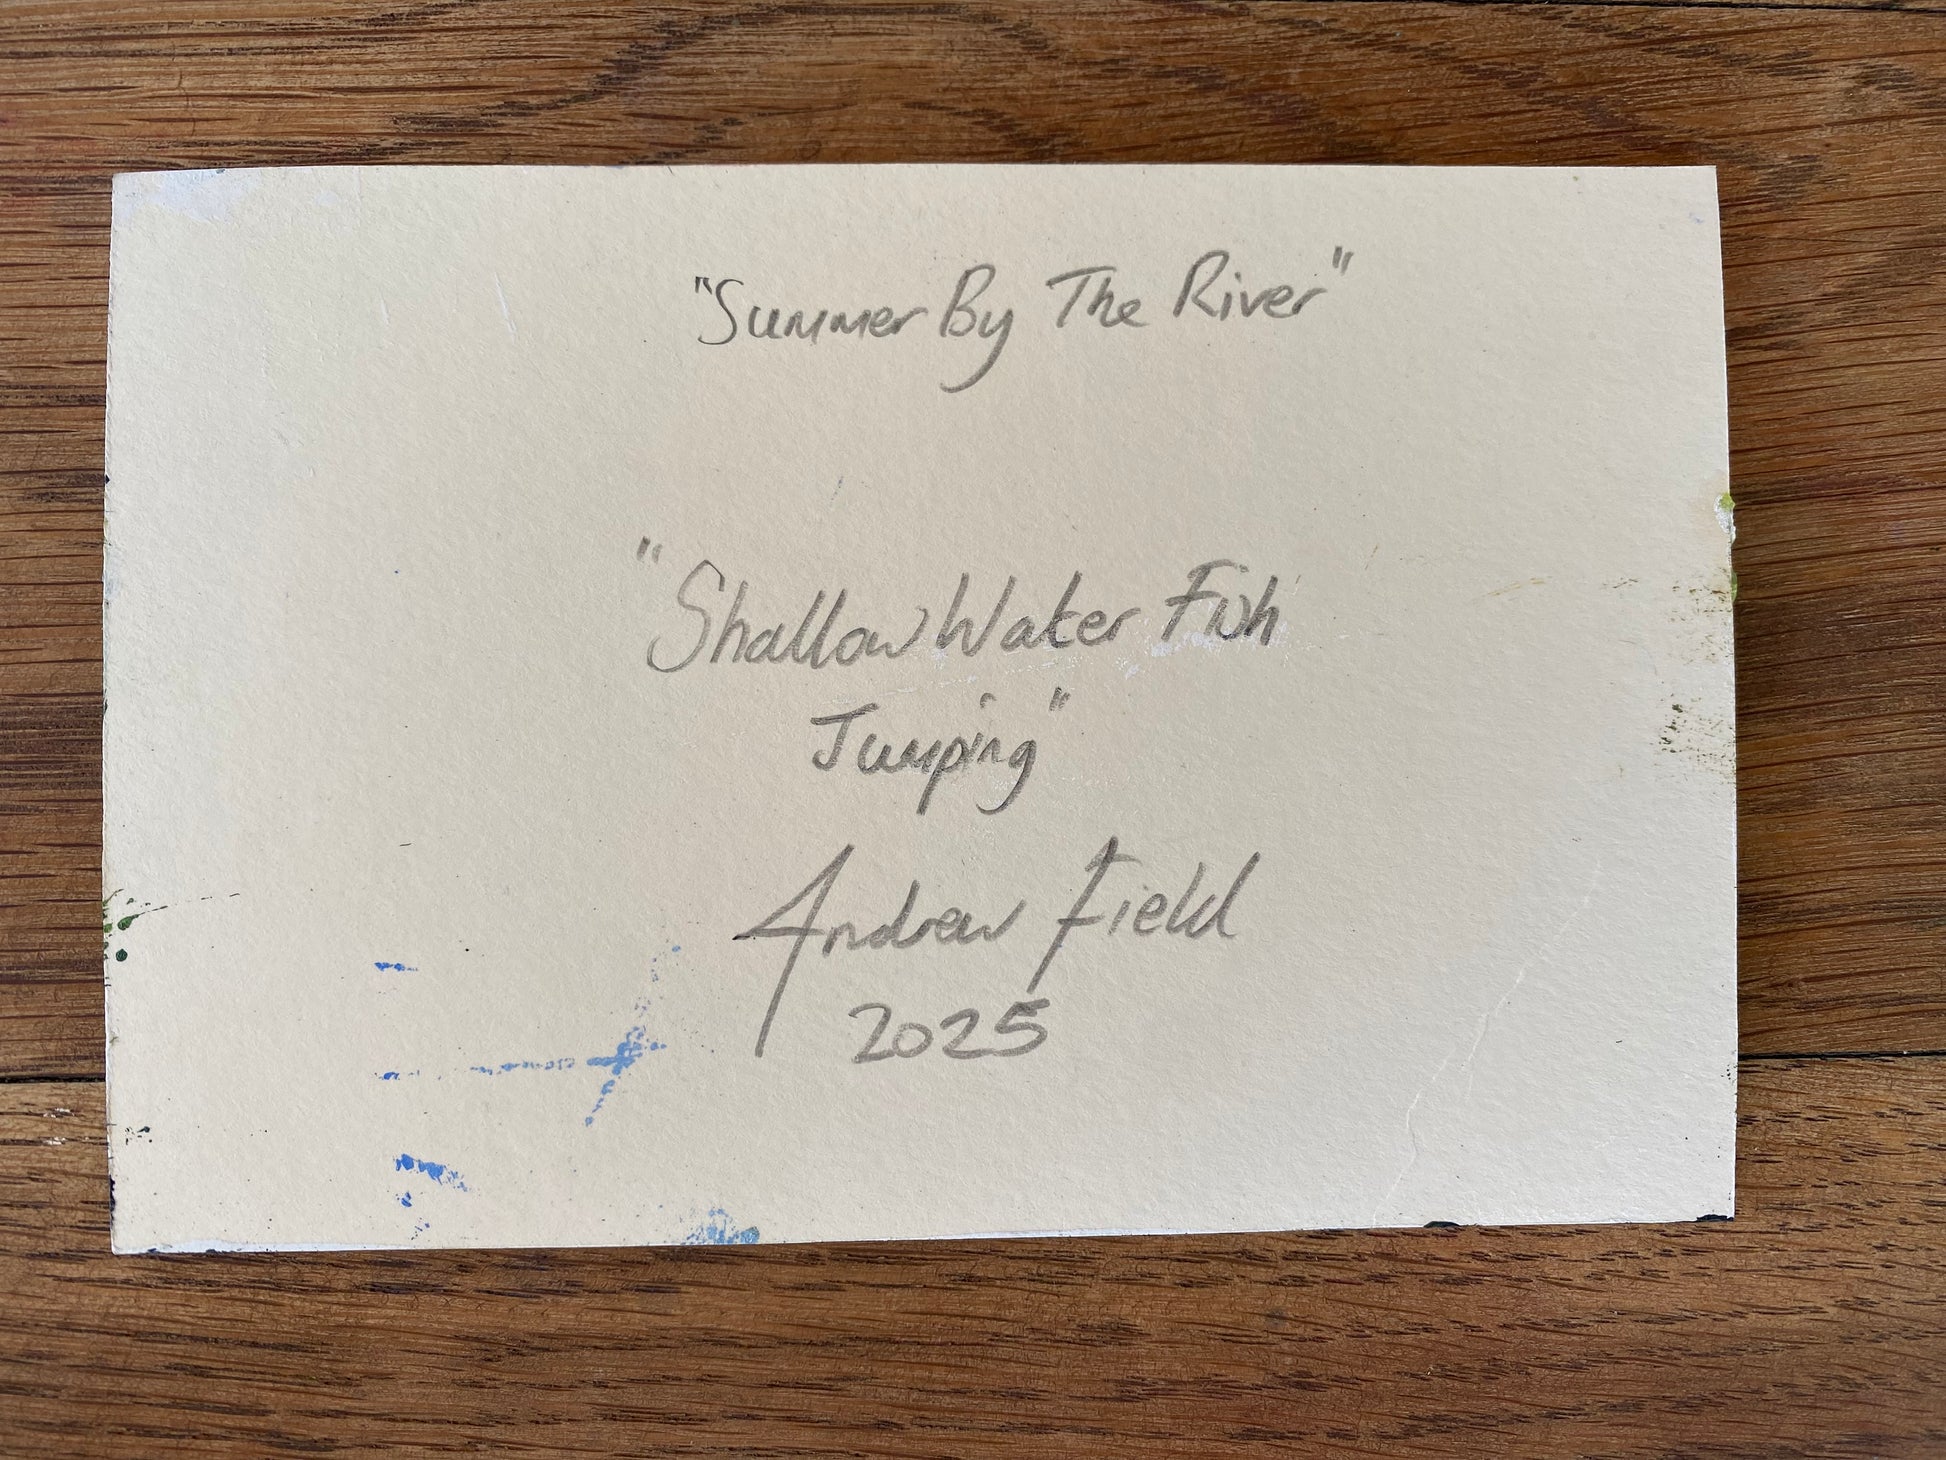 "Summer By The River"
"Shallow Water Fish
Jumping"
Andrew Field
2025